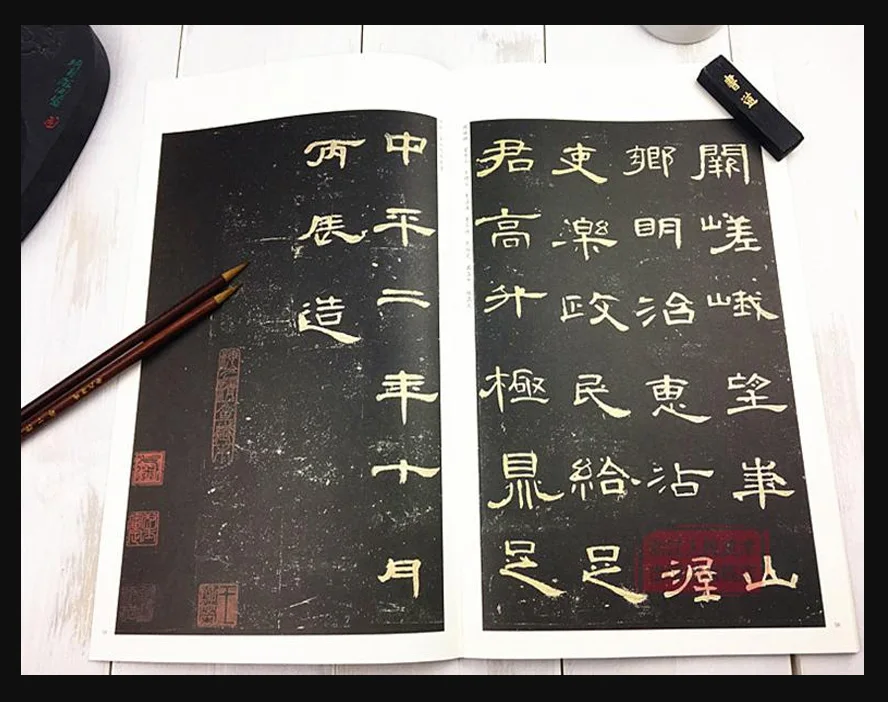 闕嵯峨望華山
鄉明治惠沾渥
吏樂政民給足
君高升極鼎足
中平二年十月
丙辰造
書道